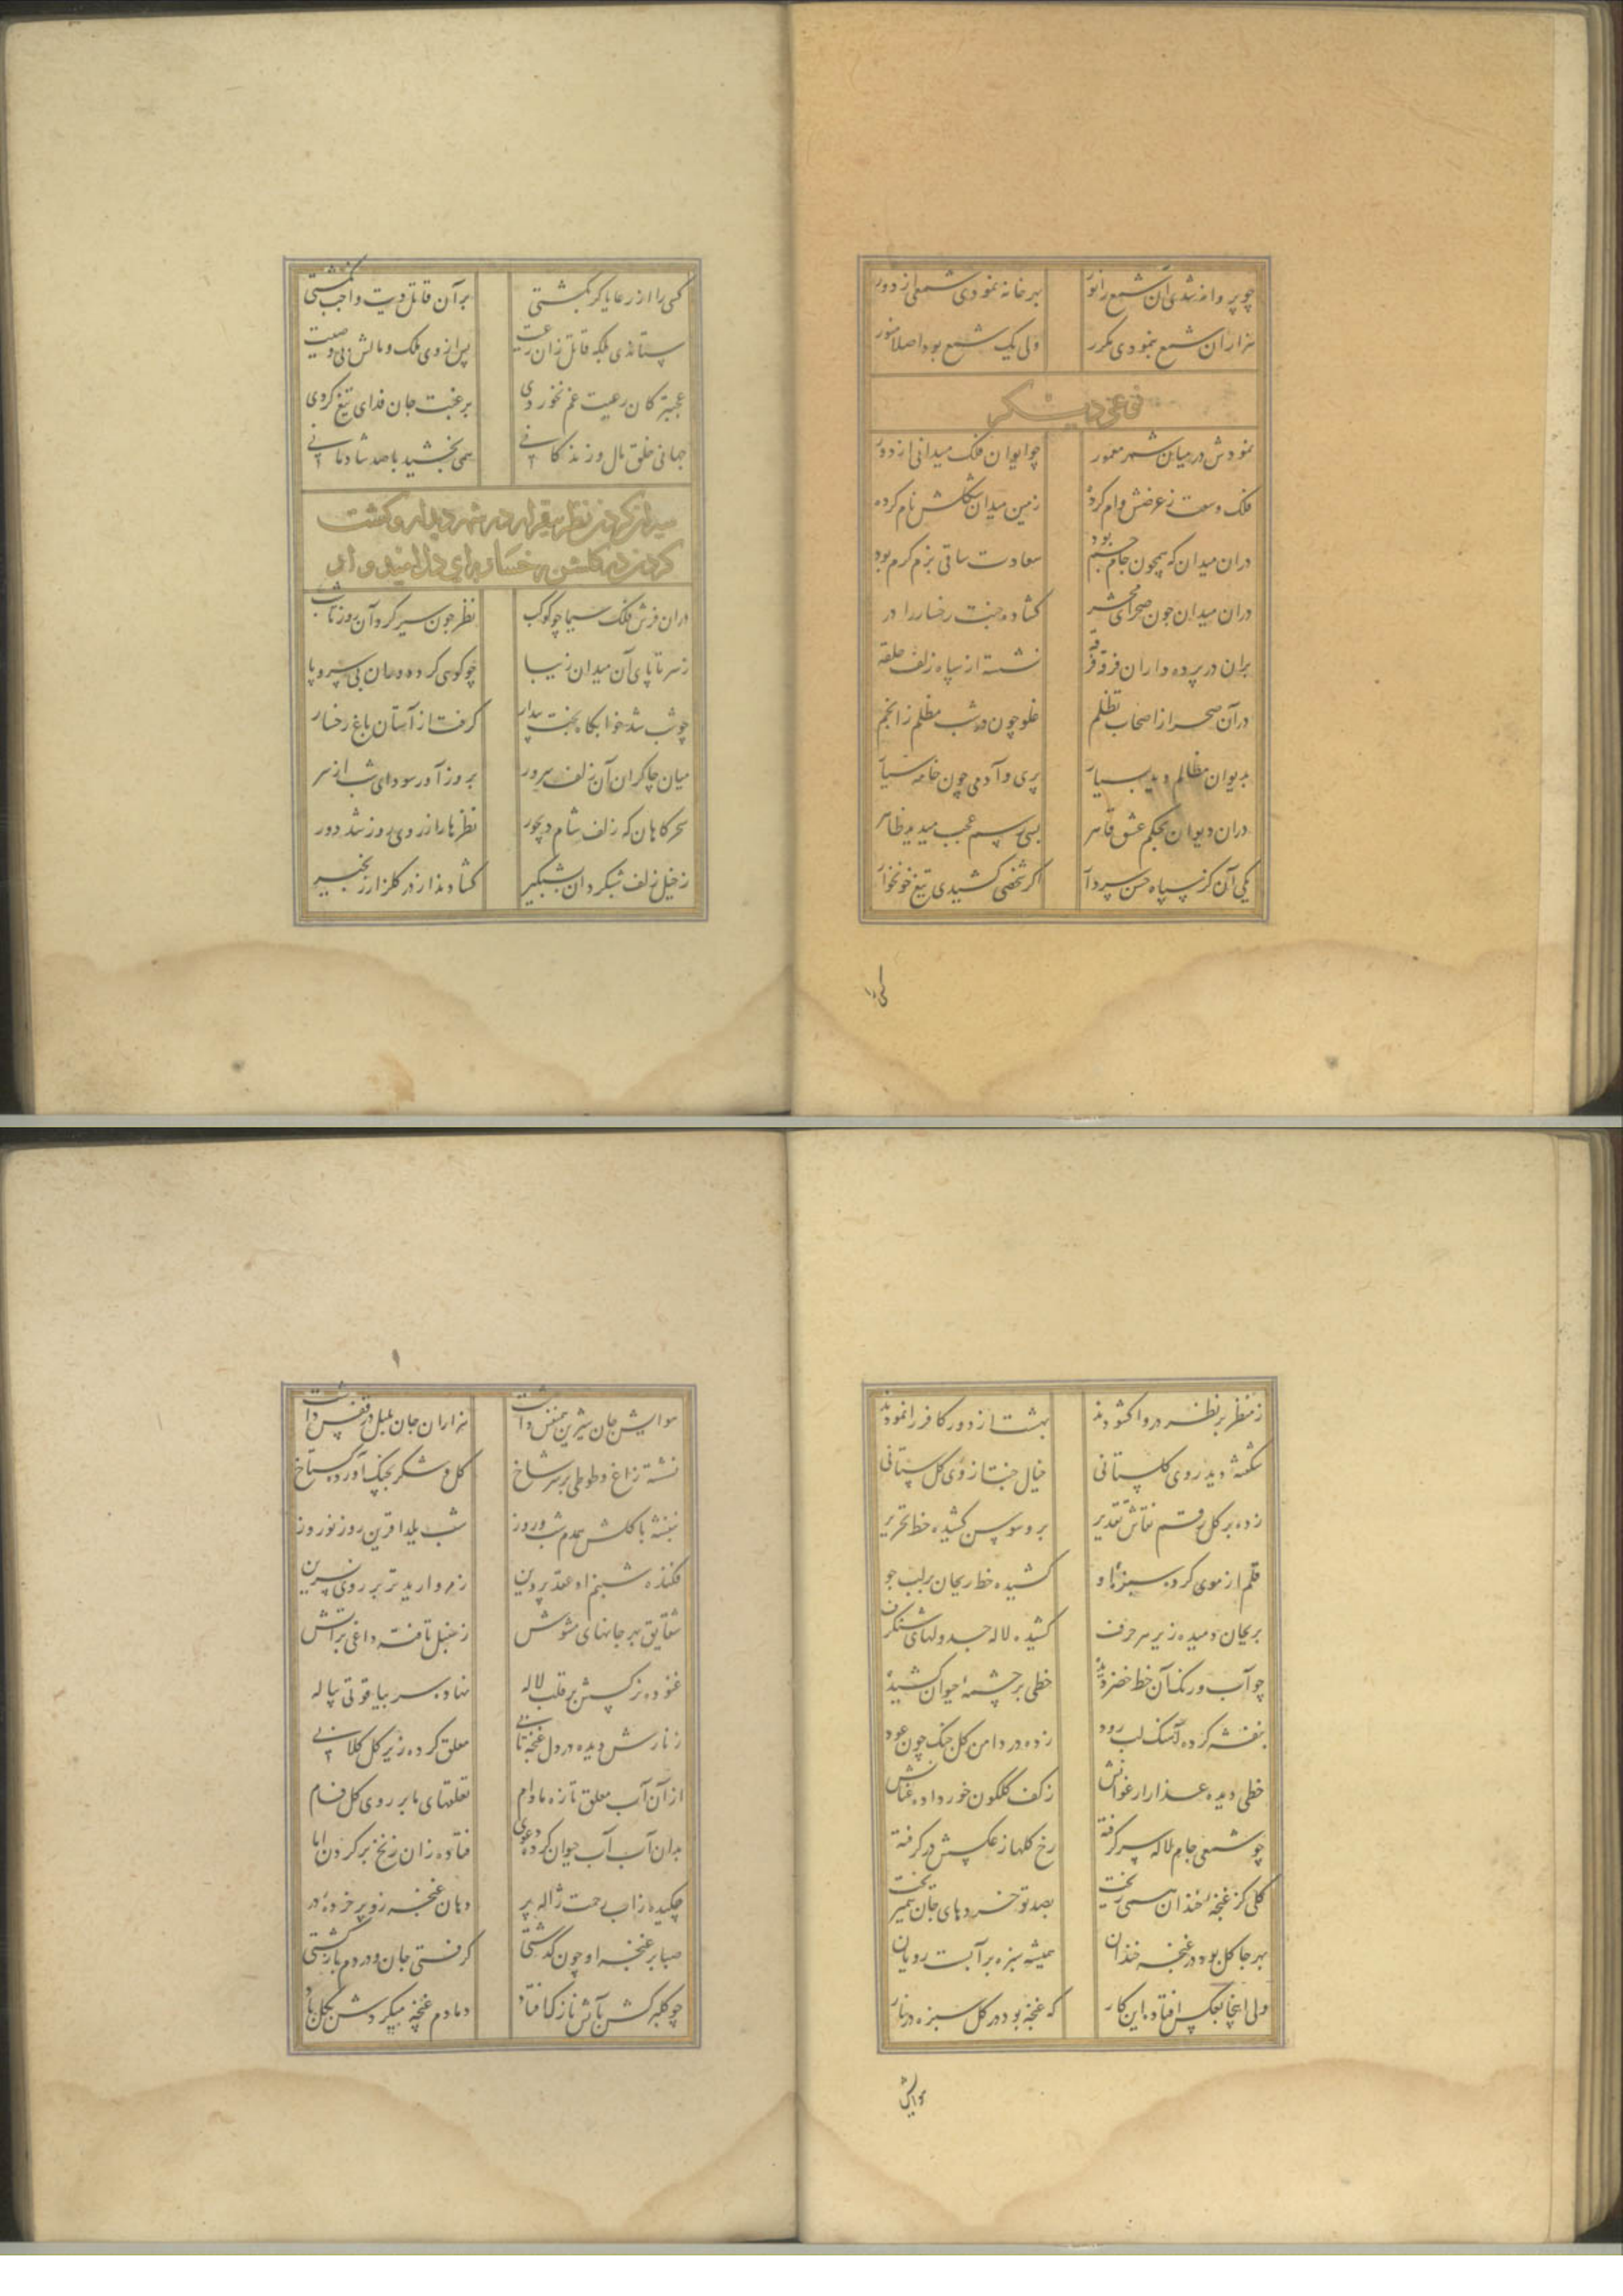 چو پروانه شدی آن شمع را نور بهر خانه نمودی شمعی از دور
هزاران شمع بنمودی مکرر ولی یک شمع بود اصلا منور
نوعی دیگر
نمودش در میان شهر معمور چو ایوان فلک میدانی از دور
فلک وسعت ز عرضش وام کرده زمین میدان شکلش نام کرده
دران میدان که همچون جام جم بود سعادت ساقی بزم کرم بود
دران میدان چون صحرای محشر کشاده جنت رخسار را در
بران در پرده داران فرقه فرقه نشسته از سپاه زلف حلقه
درآن صحرا ز اصحاب تظلم غلو چون در شب مظلم ز انجم
بدیوان مظالم دید بسیار پری و آدمی چون خامه سیار
دران دیوان بحکم عشق قاهر بسی رسم عجب میدید ظاهر
یکی آن کز سپاه حسن سردار اگر شخصی کشیدی تیغ خونخوار
کسی را
کسی را از رعایا گر بکشتی بر آن قاتل دیت واجب نگشتی
ستاندی بلکه قاتل زان رعیت پس از وی ملک و مالش بی وصیت
عجبتر کان رعیت غم نخوردی برغبت جان فدای تیغ کردی
جهانی خلق مال و زندگانی همی بخشید با صد شادمانی
میدان کردن نظر بیقرار در شهر دیدار و گشت
کردن در گلشن رخسار برای دل امیدوار
دران فرش فلک سیما چو کوکب نظر چون سیر کرد آن روز تا شب
ز سر تا پای آن میدان زیبا چو گوی کرده دوران بی سر و پا
چو شب شد خوابگاه بخت بیدار گرفت از آستان باغ رخسار
میان چاکران آن زلف سرور بروز آورد سودای شب از سر
سحرگاهان که زلف شام دیجور نظرها را ز روی روز شد دور
ز خیل زلف شبگردان شبگیر کشادند از در گلزار زنجیر
ز منظر بر نظر در وا کشودند بهشت از دور کافر را نمودند
شکفته دید روی گلستانی خیال جنت از روی گل ستانی
زده بر گل رقم نقاش تقدیر برو سوسن کشیده خط تحریر
قلم از موی کرده سبزه او کشیده خط ریحان بر لب جو
بریحان دمیده زیر هر حرف کشیده لاله جدولهای شنگرف
چو آب و رنگ آن خط خضر دید خطی بر چشمه حیوان کشیده
بنفشه کرده آهنگ لب رود زده در دامن گل چنگ چون عود
خطی دیده عذار ارغوانش ز کف گلگون خور داده عنانش
چو شمعی جام لاله سر گرفته رخ گلها ز عکسش در گرفته
گلی کز غنچه خندان همی ریخت بصد تو خرده‌های جان همیبخت
بهر جا گل بود در غنچه خندان همیشه سبزه بر آبست رویان
ولی اینجا بعکس افتاده این کار که غنچه بود در گل سبزه در نار
هوایش
هوایش جان شیرین همنفس داشت هزاران جان بلبل در قفس داشت
نشسته زاغ و طوطی بر سر شاخ گل و شکر بچنگ آورده گستاخ
بنفشه با گلش همدم شب و روز شب یلدا قرین روز نوروز
فکنده شبنم او عقد پروین ز مروارید تر بر روی نسرین
شقایق بهر جانهای مشوش ز سنبل تافته داغی بر آتش
غنوده نرگسش بر قلب لاله نهاده سر بیاقوتی پیاله
ز نارش دیده در دل غنچه تابی معلق کرده زیر گل گلابی
از آن آب معلق تازه مادام تعلقهای ما بر روی گلفام
بدان آب آب حیوان کرده دعوی فتاده زان زنخ بر گردن اما
چکیده زاب رحمت ژاله پر دهان غنچه زو پر خرده در
صبا بر غنچه او چون گذشتی گرفتی جان و در دم بازگشتی
چو گلبرگش بآتش نازک افتاد دمادم غنچه میکردش بگل باد